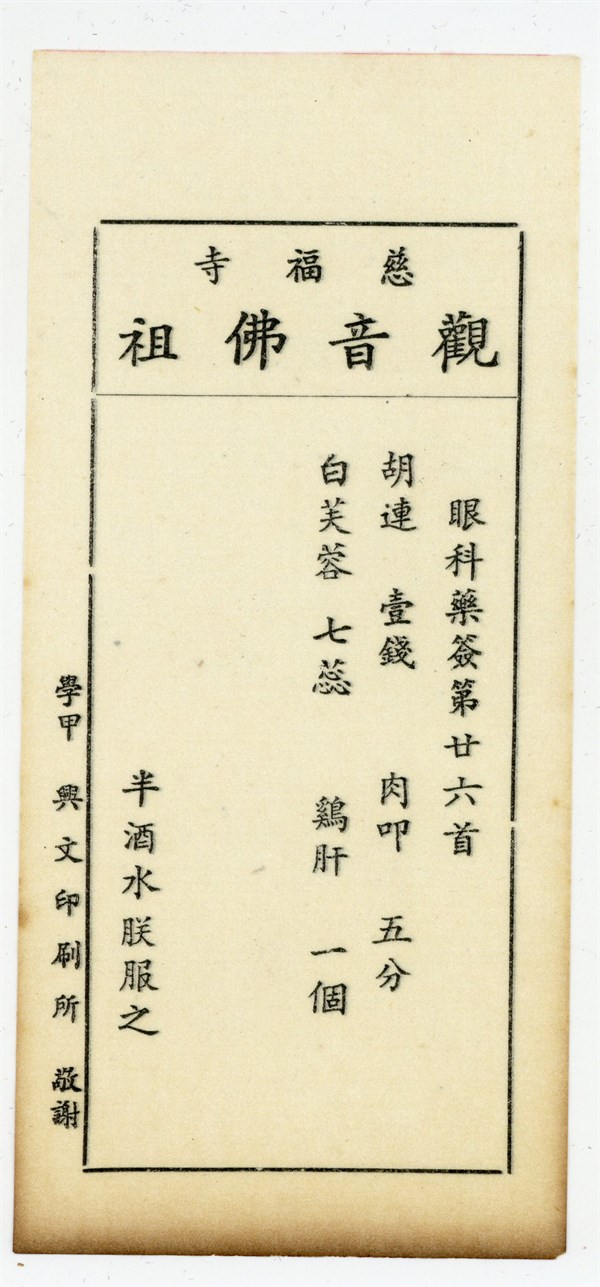 慈福寺
觀音佛祖
眼科藥簽第廿六首
胡連 壹錢 肉叩 五分
白芙蓉 七蕊 鷄肝 一個
半酒水朕服之
學甲 興文印刷所 敬謝